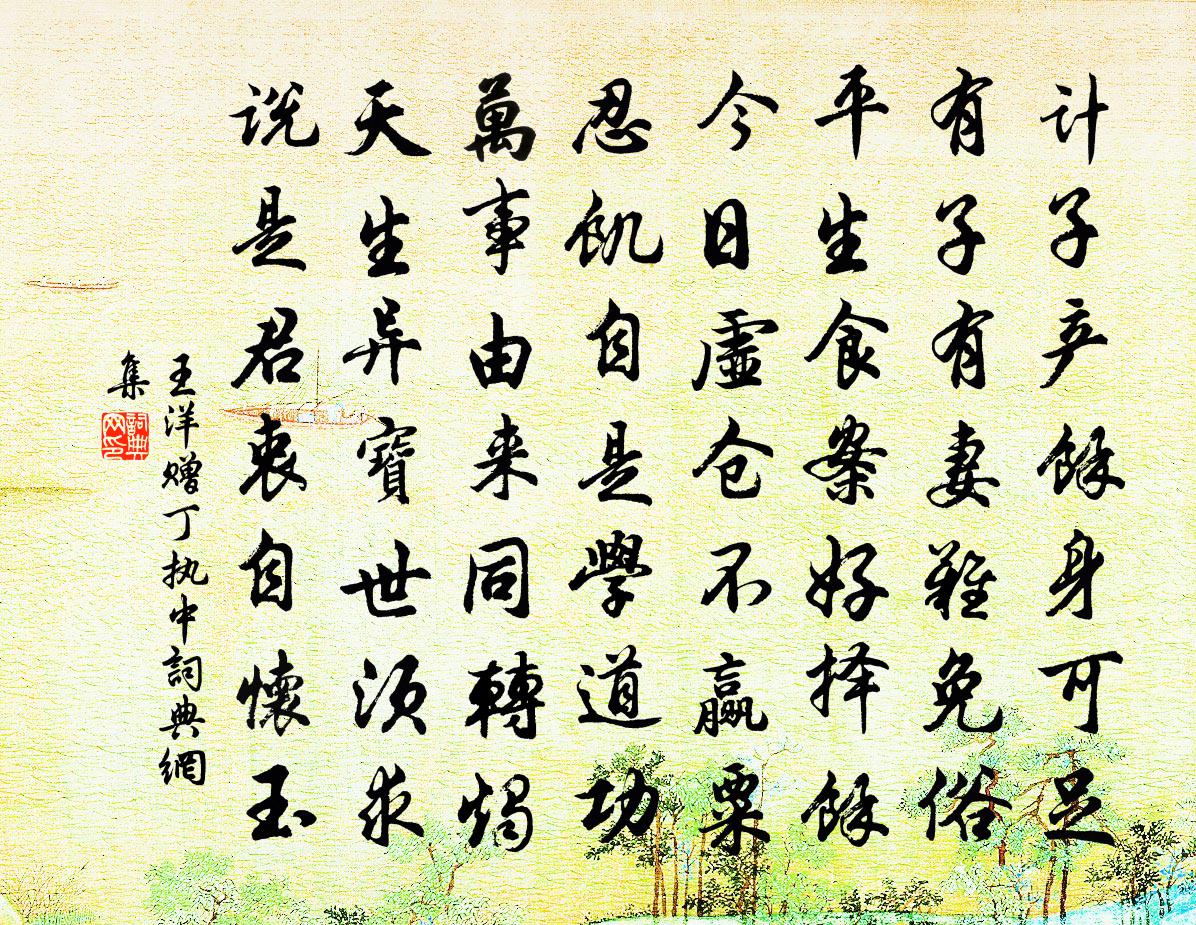 计子产馀身可足
有子有妻難免俗
平生食案好择馀
今日虚仓不赢粟
忍飢自是學道功
萬事由来同轉燭
天生异寶世须求
说是君衷自懷玉
王洋赠丁执中詞典網
集
詞典网印